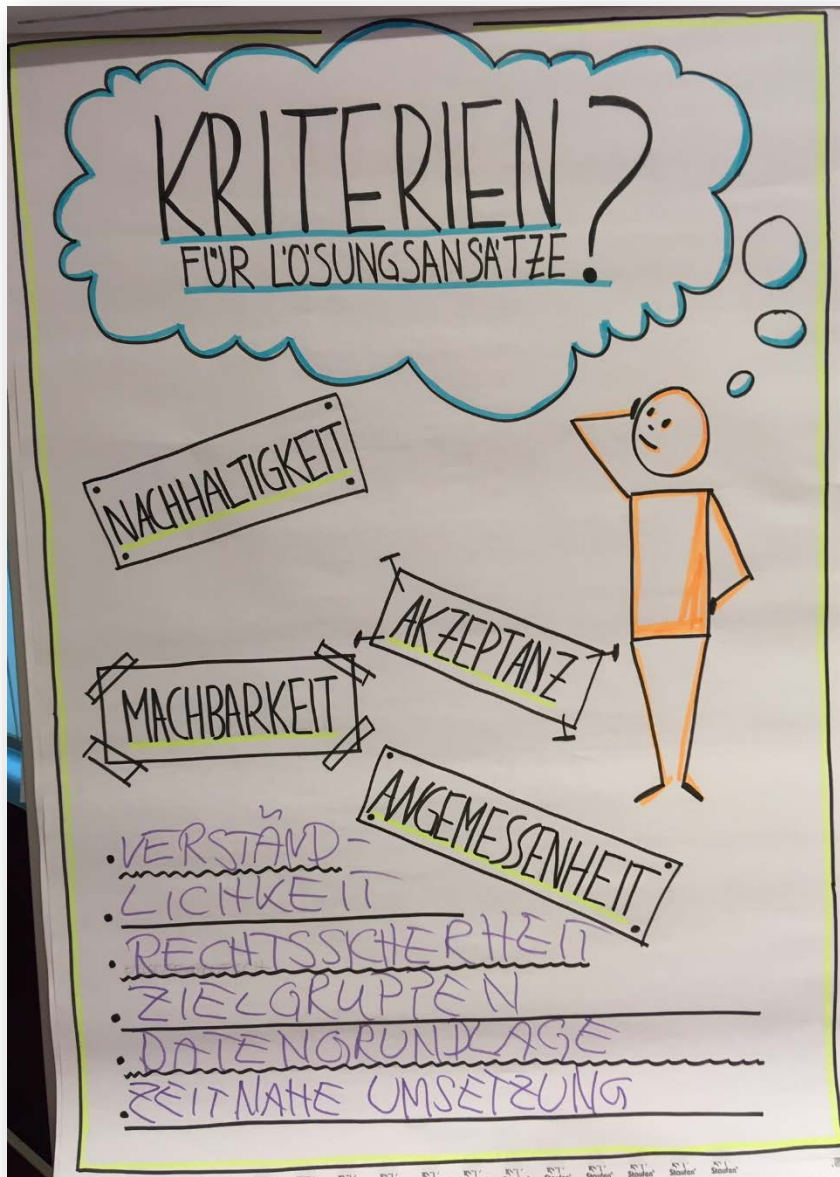 KRITERIEN?
FÜR LÖSUNGSANSÄTZE
NACHHALTIGKEIT
AKZEPTANZ
MACHBARKEIT
ANGEMESSENHEIT
• VERSTÄND-
• LICHKEIT
• RECHTSSICHERHEIT
• ZIELGRUPPEN
• DATENGRUNDLAGE
• ZEITNAHE UMSETZUNG
Staufen Staufen Staufen Staufen Staufen